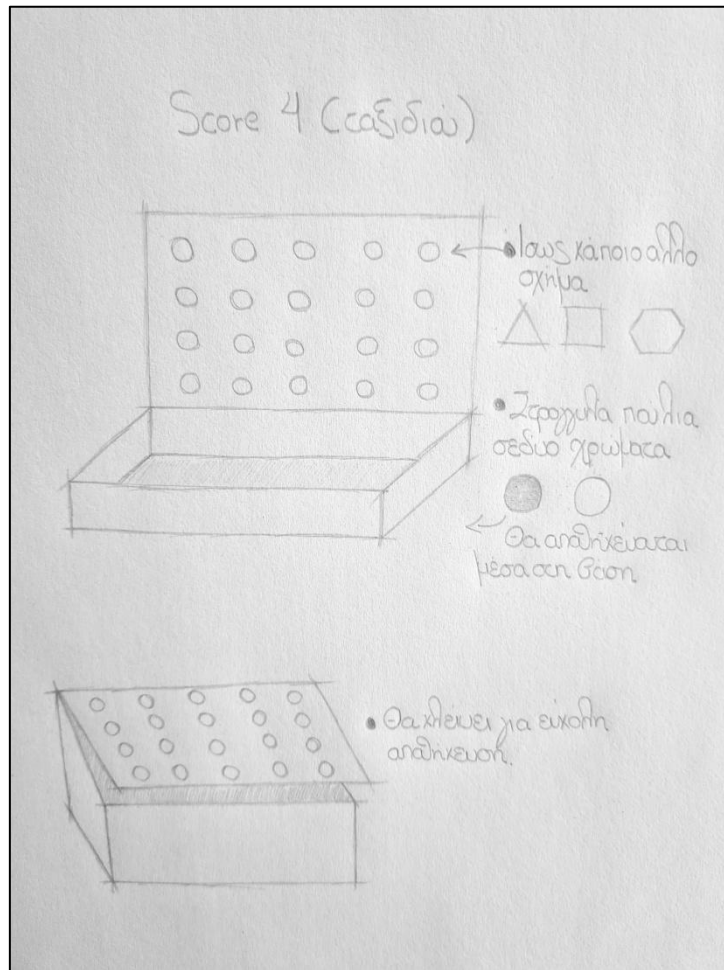 Score 4 (ταξιδιού)
• Ίσως κάποιο άλλο
σχήμα
• Στρογγυλά πούλια
σε δύο χρώματα
Θα αποθηκεύεται
μέσα στη βάση
• Θα κλείνει για εύκολη
αποθήκευση.